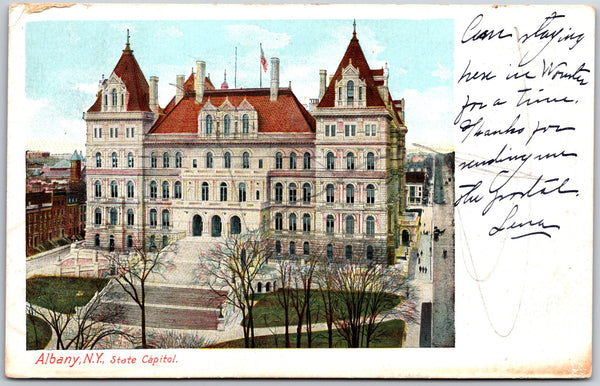 Am staying
here in Wooster
for a time.
Thanks for
sending me
the postal.
Lena
Albany, N.Y., State Capitol.